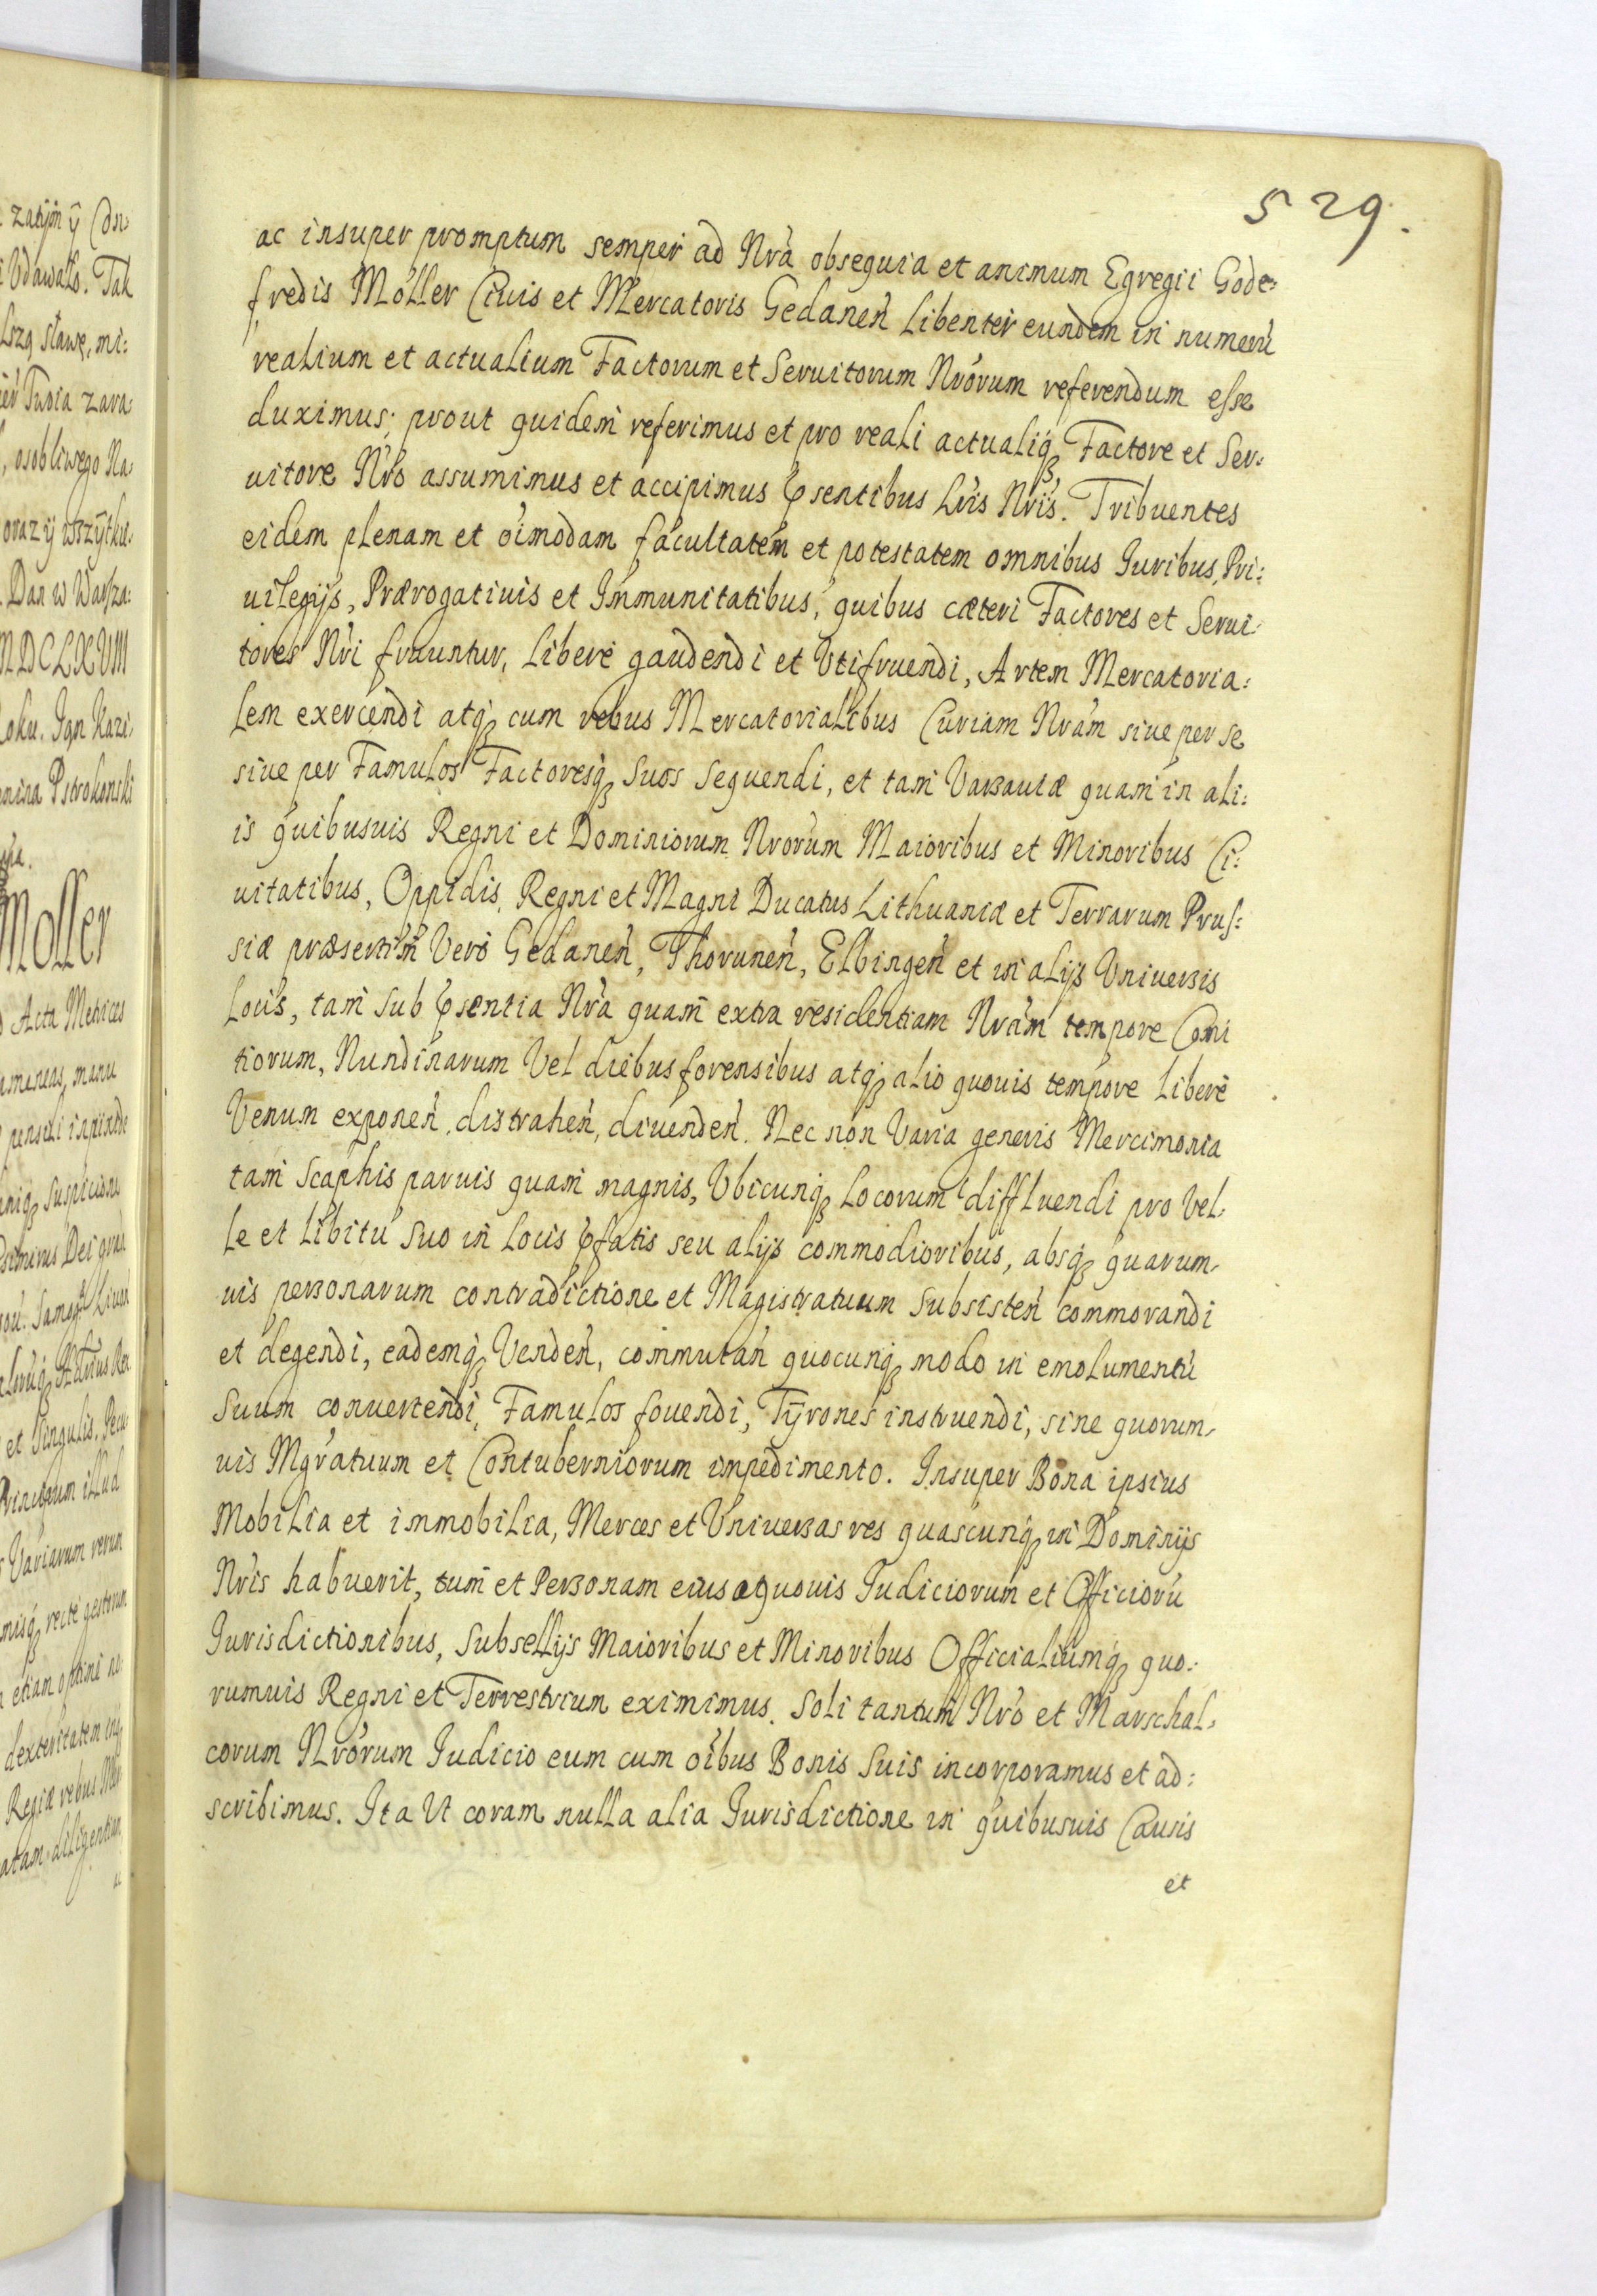 529.
ac insuper promptum semper ad Nrã obsequia et animum Egregii Gode:
fredis Moller Ciuis et Mercatoris Gedanen̄ Libenter eundem in numerū
realium et actualium Factorum et Seruitorum Nrõrum referendum esse
duximus; prout quidem referimus et pro reali actualiq3 Factore et Ser:
uitore Nrõ assumimus et accipimus p̃sentibus Lrĩs Nrĩs. Tribuentes
eidem plenam et oĩmodam facultatem et potestatem omnibus Iuribus, Pri:
uilegijs, Prærogatiuis et Immunitatibus, quibus cæteri Factores et Serui:
tores Nrĩ fruuntur, liberè gaudendi et Vtifruendi, Artem Mercatoria:
lem exercendi atq3 cum rebus Mercatorialibus Curiam Nrãm siue per se
siue per Famulos Factoresq3 Suos Sequendi, et tam Varsauiæ quam in ali:
is quibusuis Regni et Dominiorum Nrõrum Maioribus et Minoribus Ci:
uitatibus, Oppidis, Regni et Magni Ducatus Lithuaniæ et Terrarum Prus:
siæ præsertim Verò Gedanen̄, Thorunen̄, Elbingen̄ et in alijs Vniuersis
Locis, tam sub p̃sentia Nrã quam extra residentiam Nrãm tempore Comi
tiorum, Nundinarum Vel diebus forensibus atq3 alio quouis tempore liberè
Venum exponen̄, distrahen̄, diuenden̄. Nec non Varia generis Mercimonia
tam Scaphis paruis quam magnis, Vbicunq3 Locorum diffluendi pro Vel:
le et libitu Suo in Locis p̃fatis seu alijs commodioribus, absq3 quarum:
uis personarum contradictione et Magistratuum Subsisten̄ commorandi
et degendi, eademq3 Venden̄, commutan̄ quocunq3 modo in emolumentū
Suum conuertendi, Famulos fouendi, Tÿrones instruendi, sine quorum:
uis Mgrãtuum et Contuberniorum impedimento. Insuper Bona ipsius
Mobilia et immobilia, Merces et Vniuersas res quascunq3 in Dominijs
Nrĩs habuerit, tum et Personam eius a quouis Iudiciorum et Officiorū
Iurisdictionibus, Subsellijs Maioribus et Minoribus Officialiumq3 quo:
rumuis Regni et Terrestrium eximimus. Soli tantum Nrõ et Marschal:
corum Nrõrum Iudicio eum cum oĩbus Bonis Suis incorporamus et ad:
scribimus. Ita Vt coram nulla alia Iurisdictione in quibusuis Causis
et